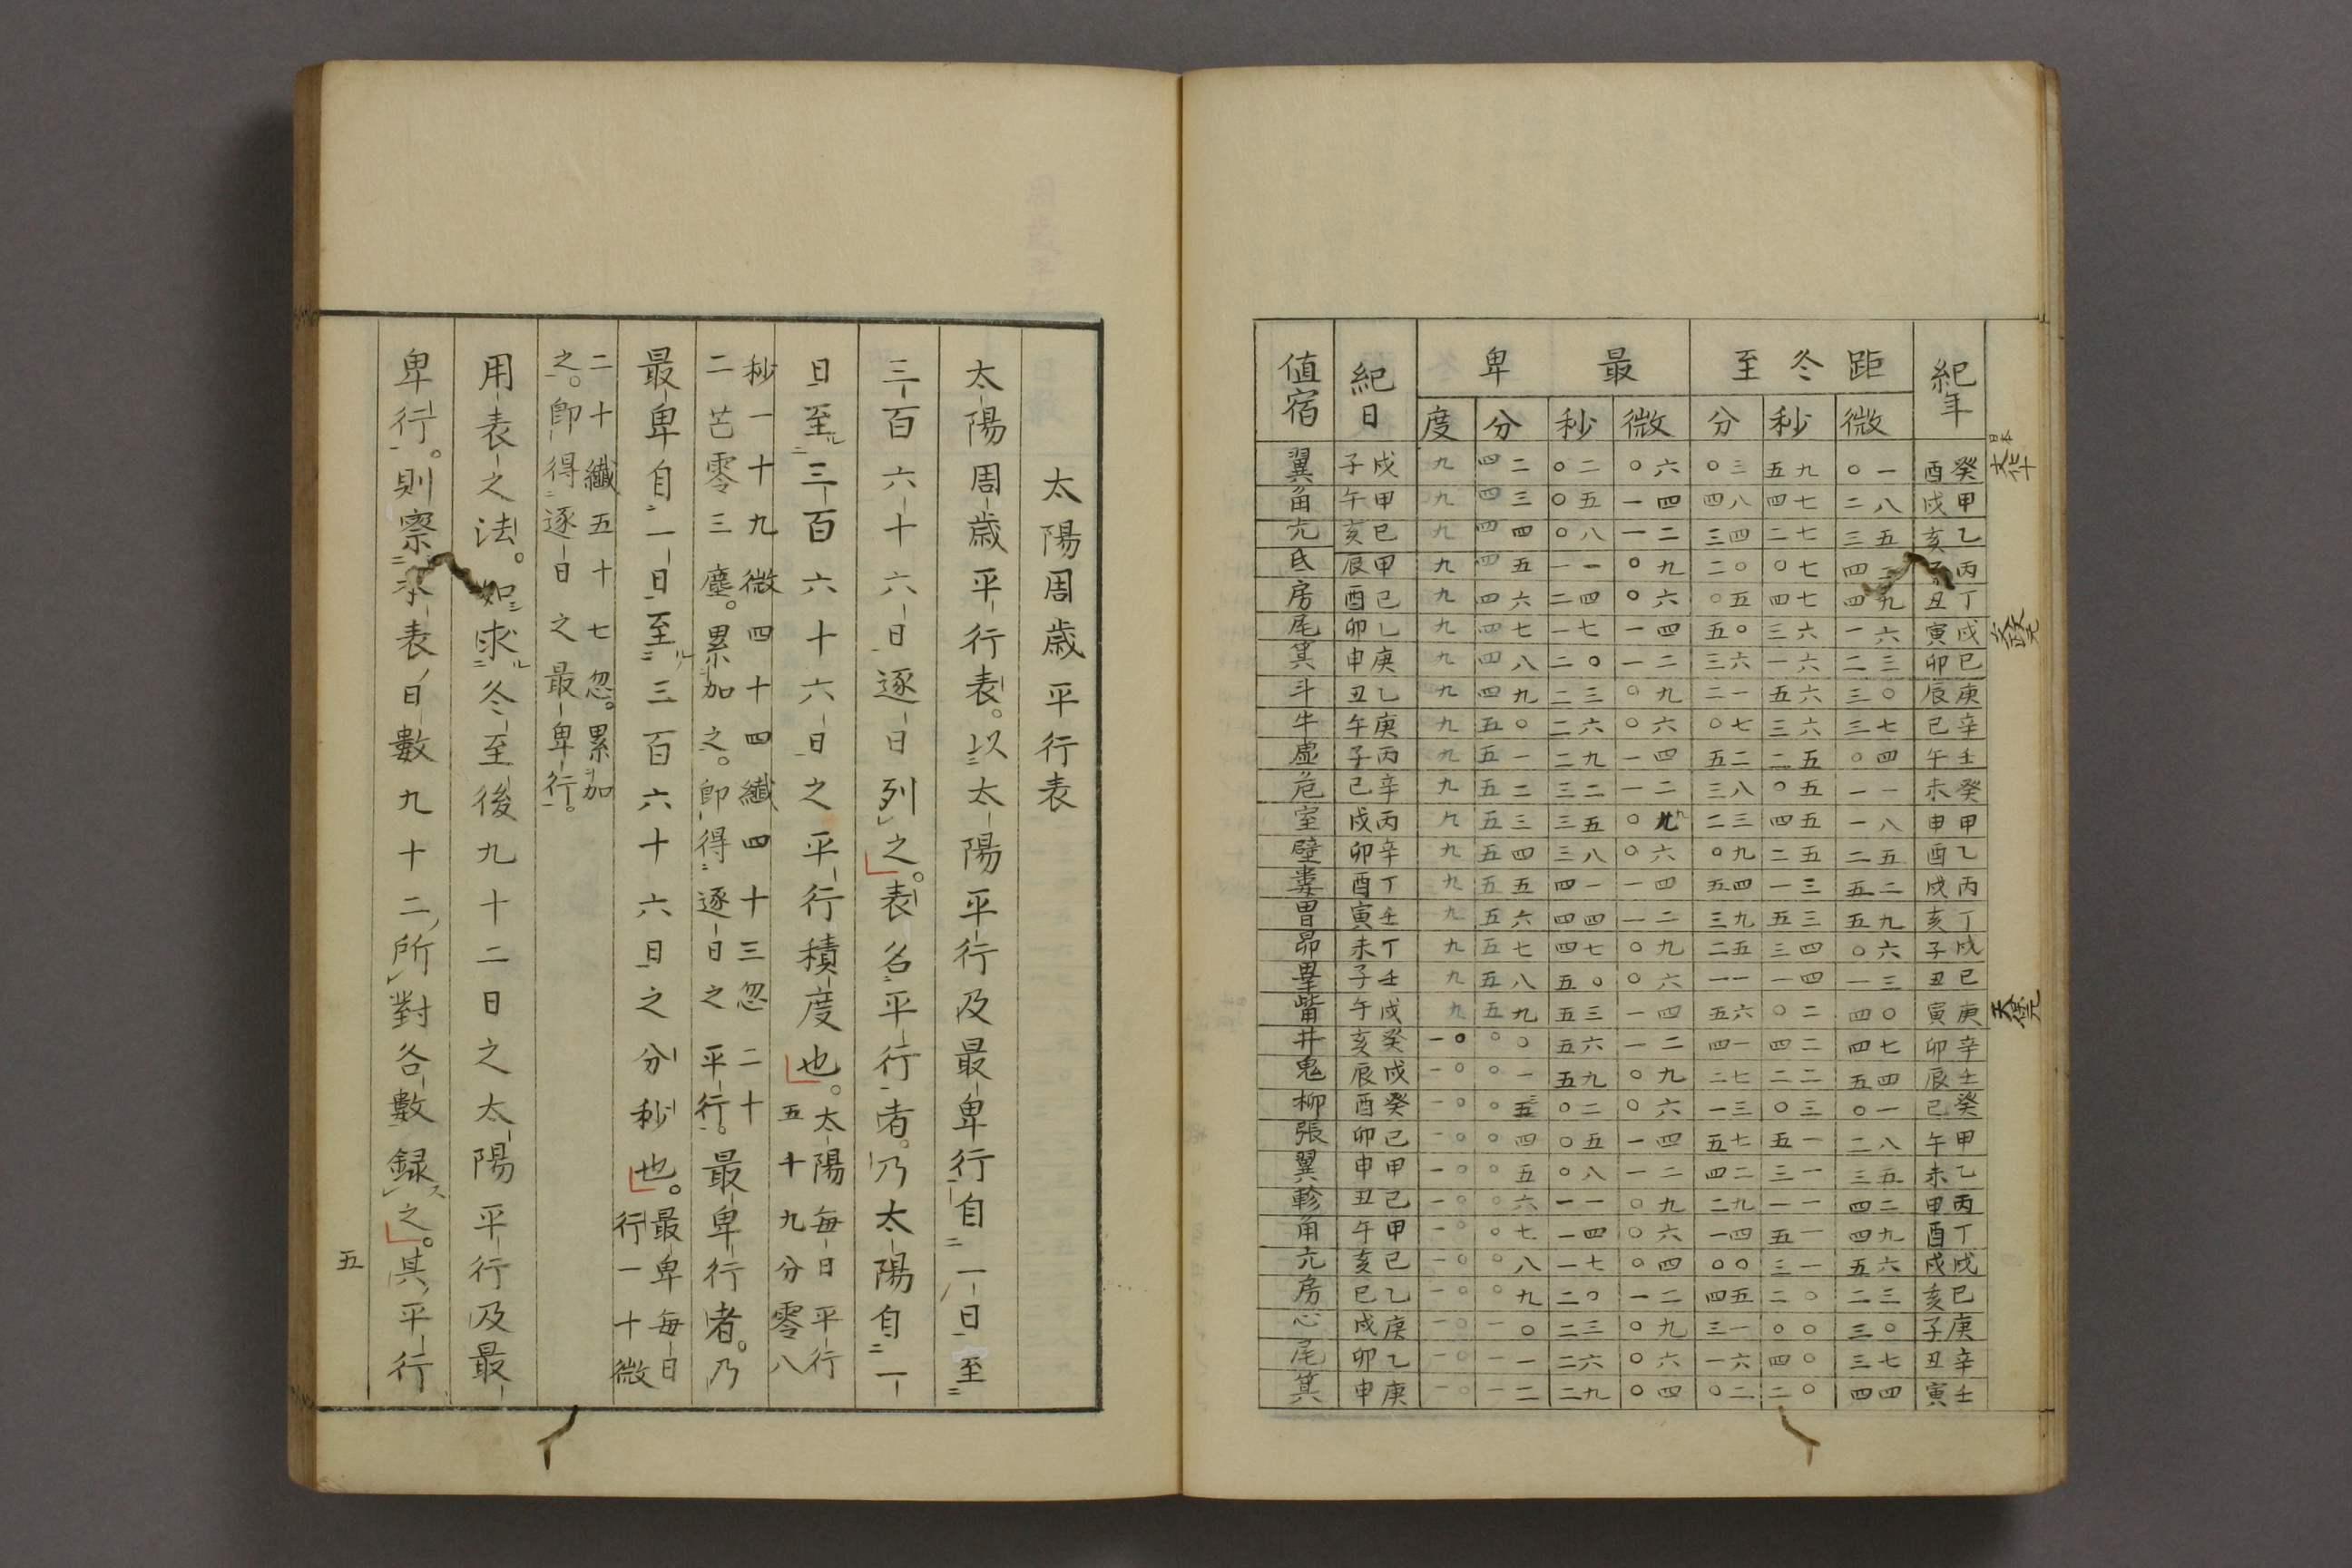 紀年 距冬至 最卑 紀日 值宿
微 秒 分 微 秒 分 度
日本文化十 癸酉 〇一 五九 〇三 〇六 〇二 四二 九 戊子 翼
甲戌 二八 四七 四八 一四 〇五 四三 九 甲午 角
乙亥 三五 二七 三四 一二 〇八 四四 九 己亥 亢
丙 四 〇七 二〇 〇九 一一 四五 九 甲辰 氐
丁丑 四九 四七 〇五 〇六 二四 四六 九 己酉 房
文政元 戊寅 一六 三六 五〇 一四 一七 四七 九 乙卯 尾
己卯 二三 一六 三六 一二 二〇 四八 九 庚申 箕
庚辰 三〇 五六 二一 〇九 二三 四九 九 乙丑 斗
辛巳 三七 三六 〇七 〇六 二六 五〇 九 庚午 牛
壬午 〇四 二五 五二 一四 二九 五一 九 丙子 虛
癸未 一一 〇五 三八 一二 三二 五二 九 辛巳 危
甲申 一八 四五 二三 〇九 三五 五三 九 丙戌 室
乙酉 二五 二五 〇九 〇六 三八 五四 九 辛卯 壁
丙戌 五二 一三 五四 一四 四一 五五 九 丁酉 婁
丁亥 五九 五三 三九 一二 四四 五六 九 壬寅 胃
戊子 〇六 三四 二五 〇九 四七 五七 九 丁未 昴
己丑 一三 一四 一一 〇六 五〇 五八 九 壬子 畢
天保元 庚寅 四〇 〇二 五六 一四 五三 五九 九 戊午 觜
辛卯 四七 四二 四一 一二 五六 〇〇 一〇 癸亥 井
壬辰 五四 二二 二七 〇九 五九 〇一 一〇 戊辰 鬼
癸巳 〇一 〇三 一三 〇六 〇二 〇三 一〇 癸酉 柳
甲午 二八 五一 五七 一四 〇五 〇四 一〇 己卯 張
乙未 三五 三一 四二 一二 〇八 〇五 一〇 甲申 翼
丙申 四二 一一 二九 〇九 一一 〇六 一〇 己丑 軫
丁酉 四九 五一 一四 〇六 一四 〇七 一〇 甲午 角
戊戌 五六 三一 〇〇 〇四 一七 〇八 一〇 己亥 亢
己亥 二三 二〇 四五 一二 二〇 〇九 一〇 乙巳 房
庚子 三〇 〇〇 三一 〇九 二三 一〇 一〇 庚戌 心
辛丑 三七 四〇 一六 〇六 二六 一一 一〇 乙卯 尾
壬寅 四四 二〇 〇二 〇四 二九 一二 一〇 庚申 箕
太陽周歲平行表
太陽周歲平行表。以太陽平行及最卑行自一日至
三百六十六日逐日列之。表名平行者。乃太陽自一
日至三百六十六日之平行積度也。太陽每日平行五十九分零八
秒一十九微四十四纖四十三忽二十
二芒零三塵。累加之。卽得逐日之平行。最卑行者。乃
最卑自一日至三百六十六日之分秒也。最卑每日行一十微
二十纖五十七忽。累加
之。卽得逐日之最卑行。
用表之法。如求冬至後九十二日之太陽平行及最
卑行。則察本表日數九十二所對各數録之。其平行
五